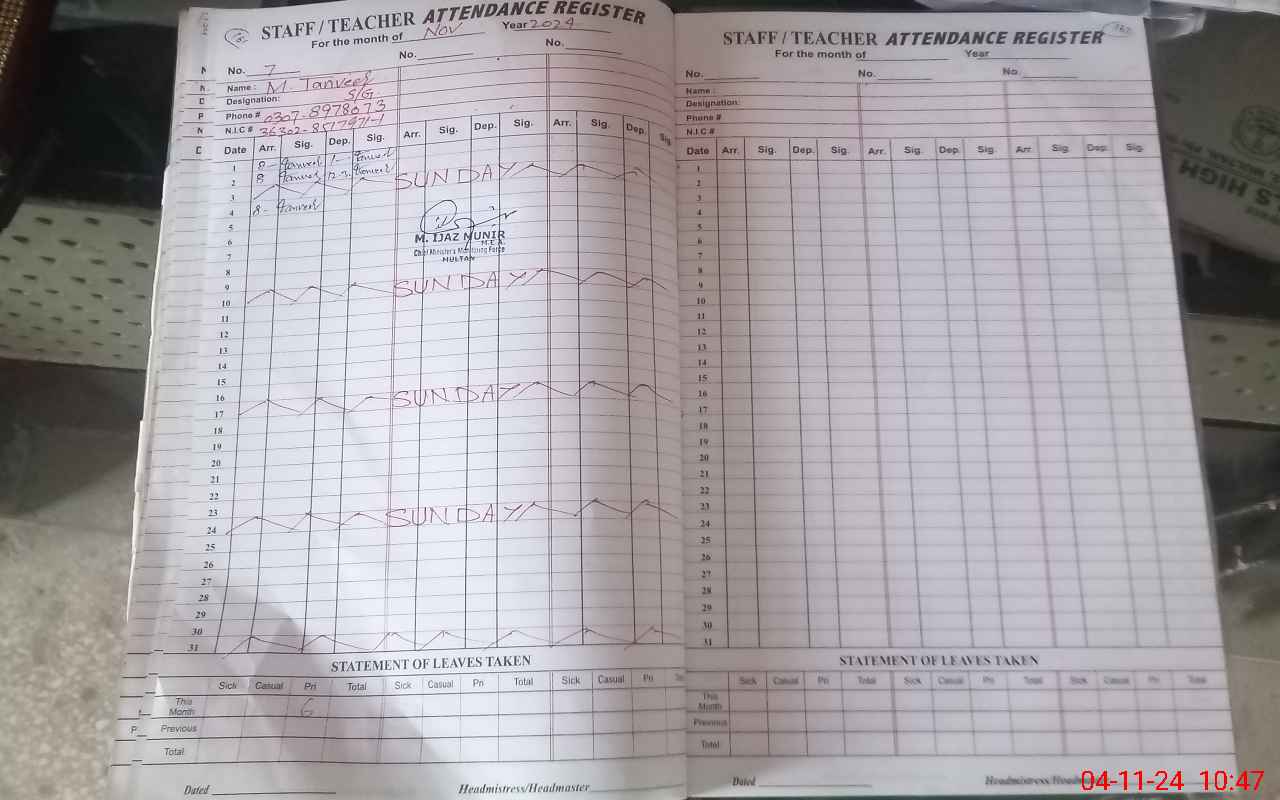 STAFF / TEACHER ATTENDANCE REGISTER
For the month of Nov Year 2024
No. No.
No. 7
Name : M. Tanveer
Designation: S/G.
Phone # 0307-8978073
N.I.C # 36302-8517971-1
Date Arr. Sig. Dep. Sig. Arr. Sig. Dep. Sig. Arr. Sig. Dep. Sig.
1 8 - Tanveer 1 - Tanveer
2 8 Tanveer Tanveer
3 SUNDAY
4 8 - Tanveer
5
6
7
M. IJAZ MUNIR
M.E.A.
Chief Minister's Monitoring Force
MULTAN
8
9
10 SUNDAY
11
12
13
14
15
16
17 SUNDAY
18
19
20
21
22
23
24 SUNDAY
25
26
27
28
29
30
31
STATEMENT OF LEAVES TAKEN
Sick Casual Pri Total Sick Casual Pri Total Sick Casual Pri
This Month
Previous
Total
Dated Headmistress/Headmaster
STAFF / TEACHER ATTENDANCE REGISTER
For the month of Year
No. No. No.
Name :
Designation:
Phone #
N.I.C #
Date Arr. Sig. Dep. Sig. Arr. Sig. Dep. Sig. Arr. Sig. Dep. Sig.
1
2
3
4
5
6
7
8
9
10
11
12
13
14
15
16
17
18
19
20
21
22
23
24
25
26
27
28
29
30
31
STATEMENT OF LEAVES TAKEN
Sick Casual Pri Total Sick Casual Pri Total Sick Casual Pri Total
This Month
Previous
Total
Dated Headmistress/Headmaster
04-11-24 10:47
HIGH